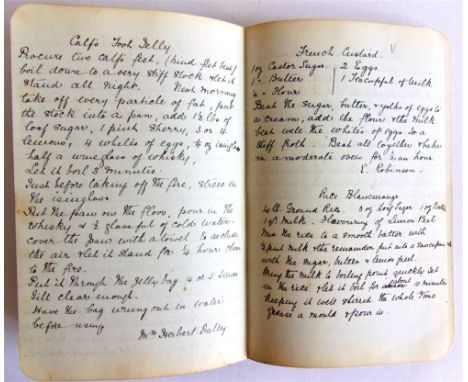 Calfs Foot Jelly
Procure two calfs feet, (hind feet best)
boil down to a very stiff stock & let it
stand all night. Next morning
take off every particle of fat, put
the stock into a pan, add ½ lbs of
loaf sugar, 1 pint sherry, 3 or 4
lemons, 4 whites of eggs, ½ oz isinglass
half a wineglass of whisky,
Let it boil 5 minutes.
Just before taking off the fire, stress in
the isinglass.
Set the pan on the floor, pour in the
whisky & ½ glassful of cold water
cover the pan with a towel to exclude
the air & let it stand for ¾ hours close
to the fire.
Put it through the jelly bag 4 or 5 times
till clear enough.
Have the bag wrung out in water
before using
Mrs Herbert Dalley
French Custard.
1 oz Castor Sugar 2 Eggs
1 " Butter 1 Teacupful of Milk
½ " Flour
Beat the sugar, butter, & yolks of eggs to
a cream, add the flour & the milk
beat well the whites of eggs to a
stiff froth. Beat all together & bake
in a moderate oven for ½ an hour
E. Robinson.
Rice Blancmange
¼ lb. Ground Rice. 3 oz Loaf Sugar 1 oz Butter
1 qt Milk. Flavouring of Lemon Peel
Mix the rice to a smooth batter with
½ pint milk & the remainder put into a saucepan
with the sugar, butter & lemon peel.
Bring the milk to boiling point quickly stir
in the rice & let it boil for about 10 minutes
Keeping it well stirred the whole time
Grease a mould & pour in.